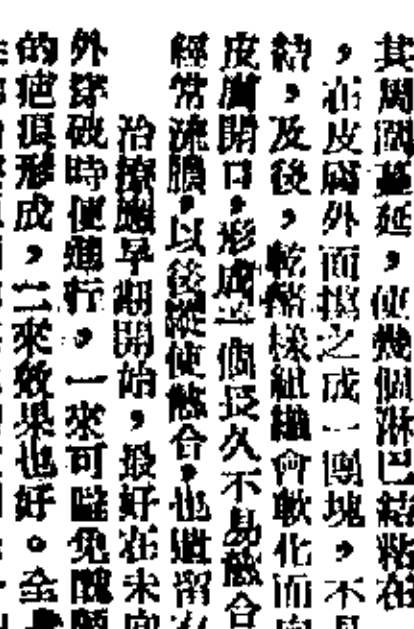 其周圍蔓延，使幾個淋巴結粘在
，在皮膚外面摸之成一團塊，不
結，及後，乾酪樣組織會軟化而向
皮膚開口，形成一個長久不易融合
經常流膿，以後縱使融合，也遺留
治療應早期開始，最好在未
外穿破時便進行，一來可避免醜
的疤痕形成，二來效果也好。全